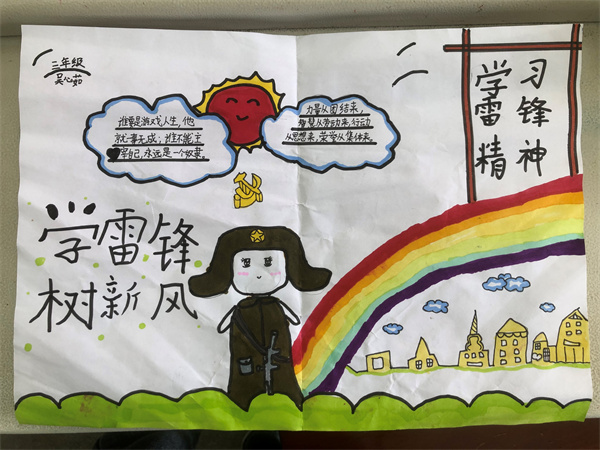 三年级
吴心茹
谁要是游戏人生，他
就一事无成；谁不能主
宰自己，永远是一个奴隶。
力量从团结来，
智慧从劳动来，行动
从思想来，荣誉从集体来。
学习
雷锋
精神
学雷锋
树新风